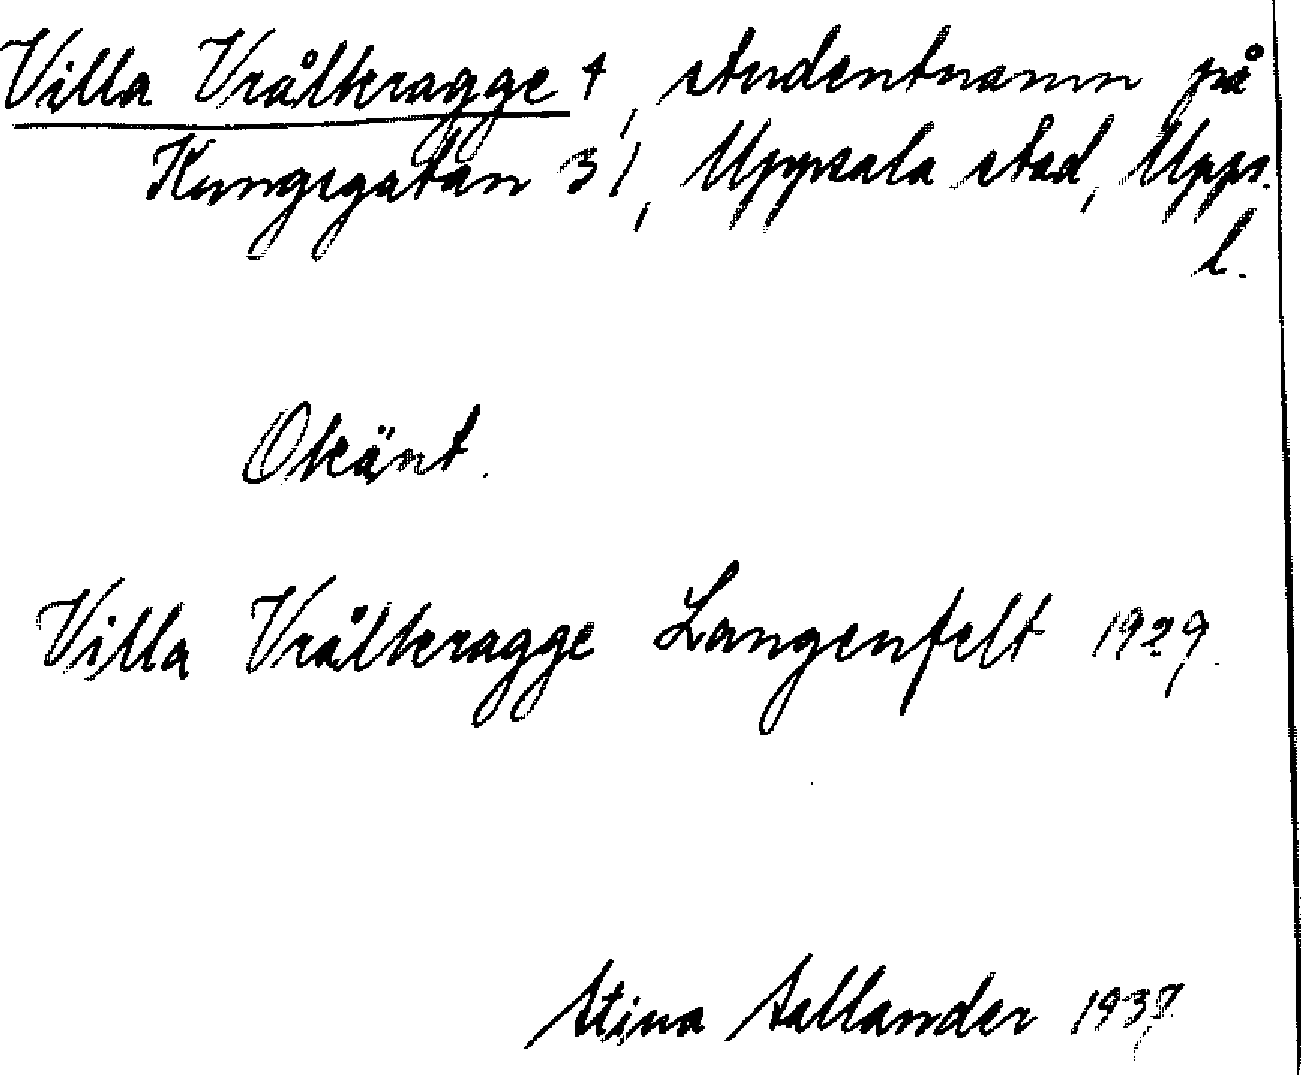 Villa Vrålkragge †, studentnamn på
Kungsgatan 31, Uppsala stad, Upps.
l.
Okänt.
Villa Vrålkragge Langenfelt 1929.
Stina Sallander 1937.